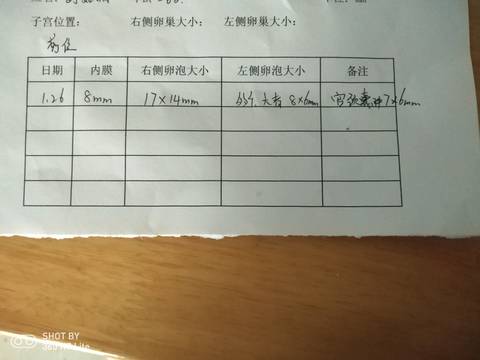 子宫位置: 右侧卵巢大小: 左侧卵巢大小:
前位
日期 内膜 右侧卵泡大小 左侧卵泡大小 备注
1.26 8mm 17×14mm 大者 8×6mm 宫颈囊肿7×6mm
SHOT BY